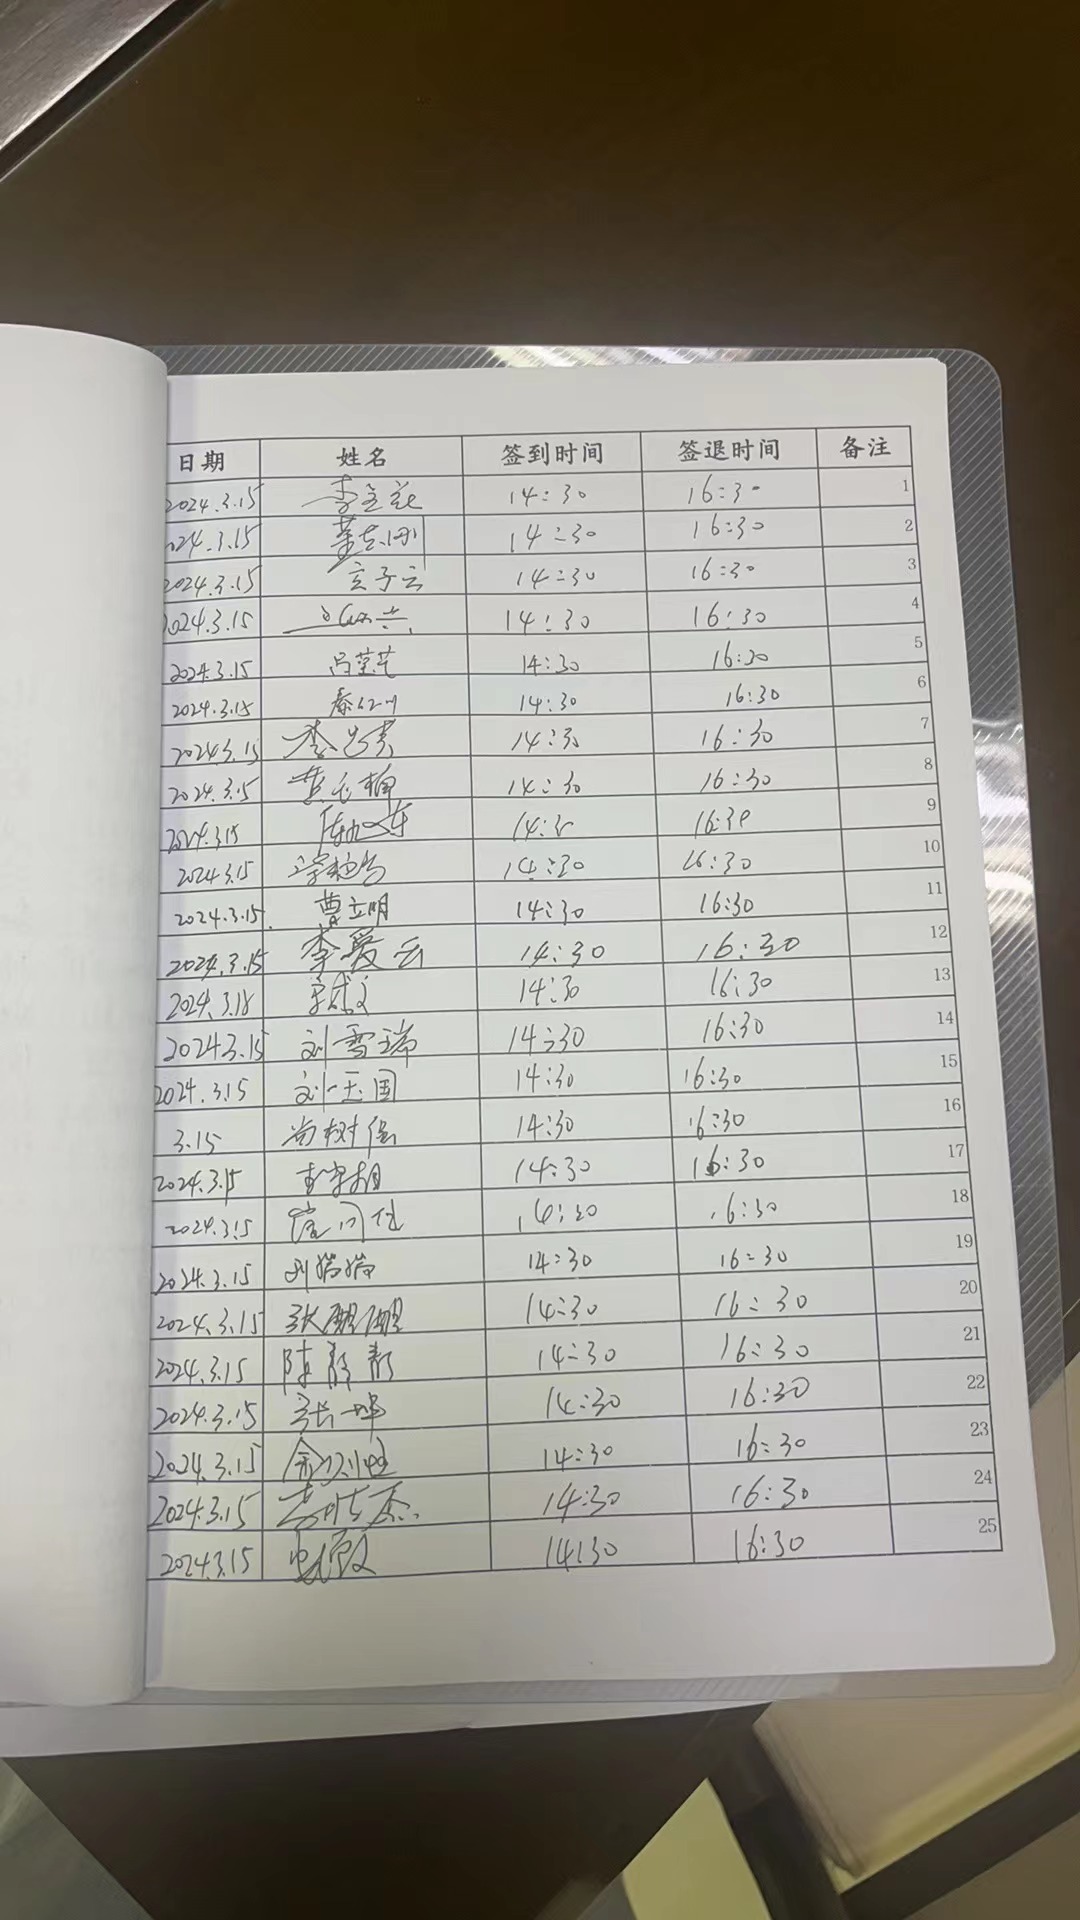 日期 姓名 签到时间 签退时间 备注
2024.3.15 14:30 16:30 1
2024.3.15 董志刚 14:30 16:30 2
2024.3.15 14:30 16:30 3
2024.3.15 14:30 16:30 4
2024.3.15 14:30 16:30 5
2024.3.15 14:30 16:30 6
2024.3.15 14:30 16:30 7
2024.3.15 14:30 16:30 8
2024.3.15 14:30 16:30 9
2024.3.15 14:30 16:30 10
2024.3.15 曹立明 14:30 16:30 11
2024.3.15 李爱云 14:30 16:30 12
2024.3.18 14:30 16:30 13
2024.3.15 刘雪瑞 14:30 16:30 14
2024.3.15 刘玉国 14:30 16:30 15
3.15 尚树 14:30 16:30 16
2024.3.15 14:30 16:30 17
2024.3.15 14:30 16:30 18
2024.3.15 14:30 16:30 19
2024.3.15 张 14:30 16:30 20
2024.3.15 陈静静 14:30 16:30 21
2024.3.15 张 14:30 16:30 22
2024.3.15 14:30 16:30 23
2024.3.15 14:30 16:30 24
2024.3.15 14:30 16:30 25